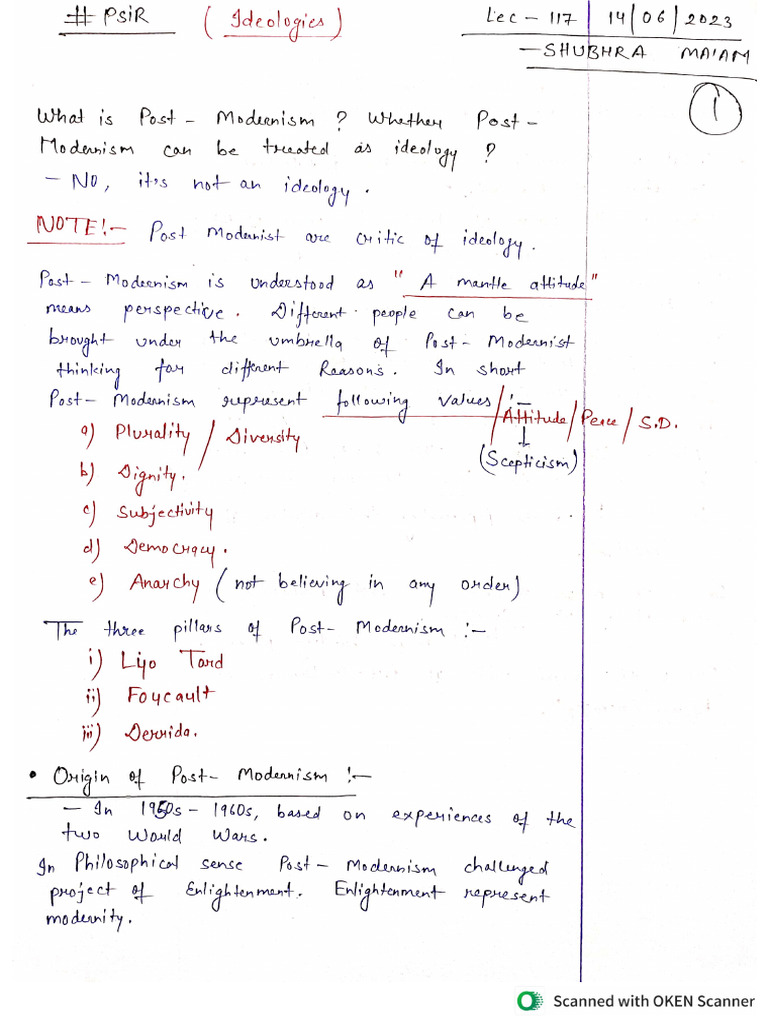 # PSIR (Ideologies) Lec - 117 14/06/2023
- SHUBHRA MA'AM
1
What is Post - Modernism ? Whether Post -
Modernism can be treated as ideology ?
- No, it's not an ideology.
NOTE!- Post Modernist are critic of ideology.
Post - Modernism is understood as "A mantle attitude"
means perspective. Different people can be
brought under the umbrella of Post - Modernist
thinking for different Reasons. In short
Post - Modernism represent following values / :-
/ Attitude / Perce / S.D.
a) Plurality / Diversity
(Scepticism)
b) Dignity.
c) Subjectivity
d) Democracy.
e) Anarchy (not believing in any order)
The three pillars of Post - Modernism :-
i) Liyo Tard
ii) Foucault
iii) Derrida.
• Origin of Post - Modernism :-
- In 1950s - 1960s, based on experiences of the
two World Wars.
In Philosophical sense Post - Modernism challenged
project of Enlightenment. Enlightenment represent
modernity.
Scanned with OKEN Scanner